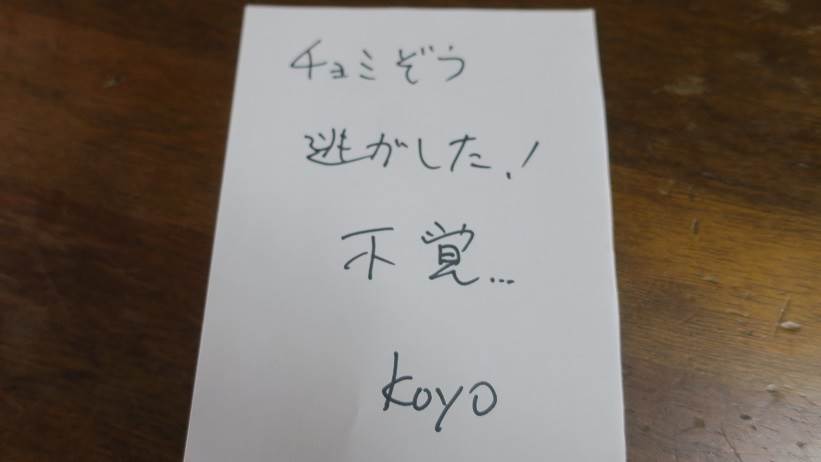 チョミぞう
逃がした!
不覚...
Koyo